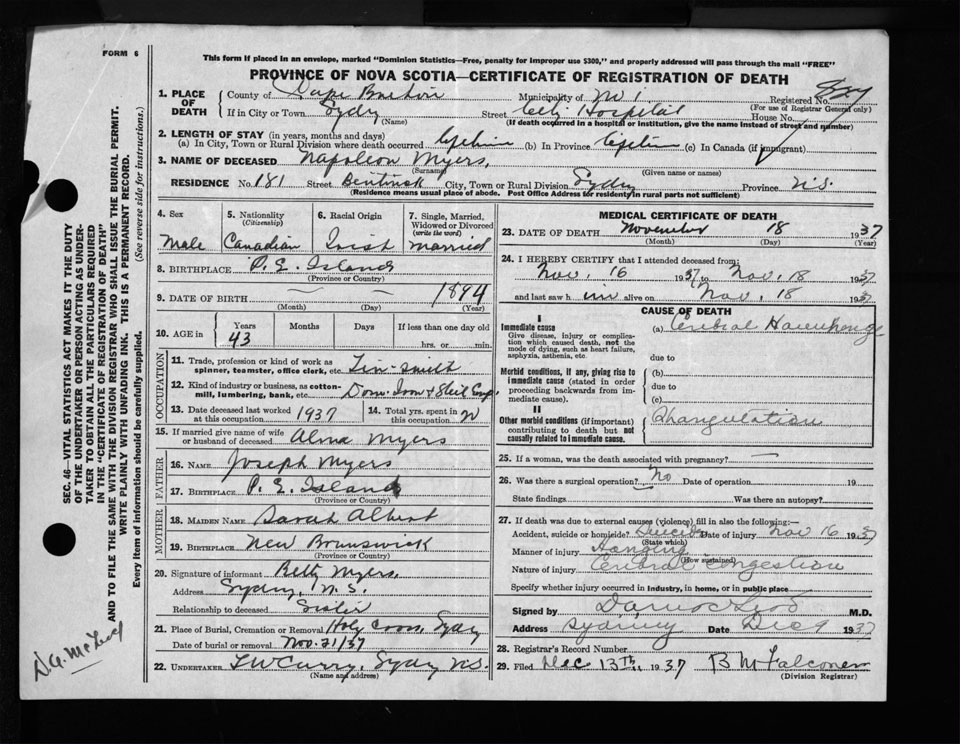 FORM 6
This form if placed in an envelope, marked "Dominion Statistics—Free, penalty for improper use $300," and properly addressed will pass through the mail "FREE"
PROVINCE OF NOVA SCOTIA—CERTIFICATE OF REGISTRATION OF DEATH
1. PLACE OF DEATH County of Cape Breton Municipality of No 1 Registered No.
(For use of Registrar General only)
If in City or Town Sydney (Name) Street City Hospital House No.
(If death occurred in a hospital or institution, give the name instead of street and number)
2. LENGTH OF STAY (in years, months and days)
(a) In City, Town or Rural Division where death occurred Lifetime (b) In Province Lifetime (c) In Canada (if immigrant)
3. NAME OF DECEASED Napoleon Myers,
(Surname) (Given name or names)
RESIDENCE No. 181 Street Bentinck City, Town or Rural Division Sydney Province N.S.
(Residence means usual place of abode. Post Office Address for residents in rural parts not sufficient)
4. Sex Male
5. Nationality (Citizenship) Canadian
6. Racial Origin Irish
7. Single, Married, Widowed or Divorced (write the word) Married
8. BIRTHPLACE P. E. Island
(Province or Country)
9. DATE OF BIRTH 1894
(Month) (Day) (Year)
10. AGE in Years 43 Months Days If less than one day old hrs. or min.
OCCUPATION
11. Trade, profession or kind of work as spinner, teamster, office clerk, etc. Tin-smith
12. Kind of industry or business, as cotton-mill, lumbering, bank, etc. Dom. Iron & Steel
13. Date deceased last worked at this occupation 1937
14. Total yrs. spent in this occupation
15. If married give name of wife or husband of deceased Alma Myers
FATHER
16. NAME Joseph Myers
17. BIRTHPLACE P. E. Island
(Province or Country)
MOTHER
18. MAIDEN NAME Sarah Albert
19. BIRTHPLACE New Brunswick
(Province or Country)
20. Signature of informant Betty Myers,
Address Sydney, N.S.
Relationship to deceased Sister
21. Place of Burial, Cremation or Removal Holy Cross, Sydney
Date of burial or removal Nov. 21/37
22. UNDERTAKER T W Curry, Sydney N.S.
(Name and address)
MEDICAL CERTIFICATE OF DEATH
23. DATE OF DEATH November 18 1937
(Month) (Day) (Year)
24. I HEREBY CERTIFY that I attended deceased from:
Nov. 16 1937 to Nov. 18 1937
and last saw h im alive on Nov. 18 1937
CAUSE OF DEATH
I
Immediate cause
Give disease, injury or complication which caused death, not the mode of dying, such as heart failure, asphyxia, asthenia, etc.
(a) Cerebral Haemorrhage
due to
Morbid conditions, if any, giving rise to immediate cause (stated in order proceeding backwards from immediate cause).
(b)
due to
(c)
II
Other morbid conditions (if important) contributing to death but not causally related to immediate cause.
Strangulation
25. If a woman, was the death associated with pregnancy? —
26. Was there a surgical operation? No Date of operation 19
State findings Was there an autopsy?
27. If death was due to external causes (violence) fill in also the following:—
Accident, suicide or homicide? Suicide Date of injury Nov 16 1937
(State which)
Manner of injury Hanging
(How sustained)
Nature of injury Cerebral Congestion
Specify whether injury occurred in industry, in home, or in public place
Signed by M.D.
Address Sydney Date Dec 9 1937
28. Registrar's Record Number
29. Filed Dec. 13th, 1937 B M Falconer
(Division Registrar)
SEC. 46—VITAL STATISTICS ACT MAKES IT THE DUTY
OF THE UNDERTAKER OR PERSON ACTING AS UNDER-
TAKER TO OBTAIN ALL THE PARTICULARS REQUIRED
IN THE "CERTIFICATE OF REGISTRATION OF DEATH"
AND TO FILE THE SAME WITH THE DIVISION REGISTRAR WHO SHALL ISSUE THE BURIAL PERMIT.
WRITE PLAINLY WITH UNFADING INK. THIS IS A PERMANENT RECORD.
Every item of information should be carefully supplied. (See reverse side for instructions.)